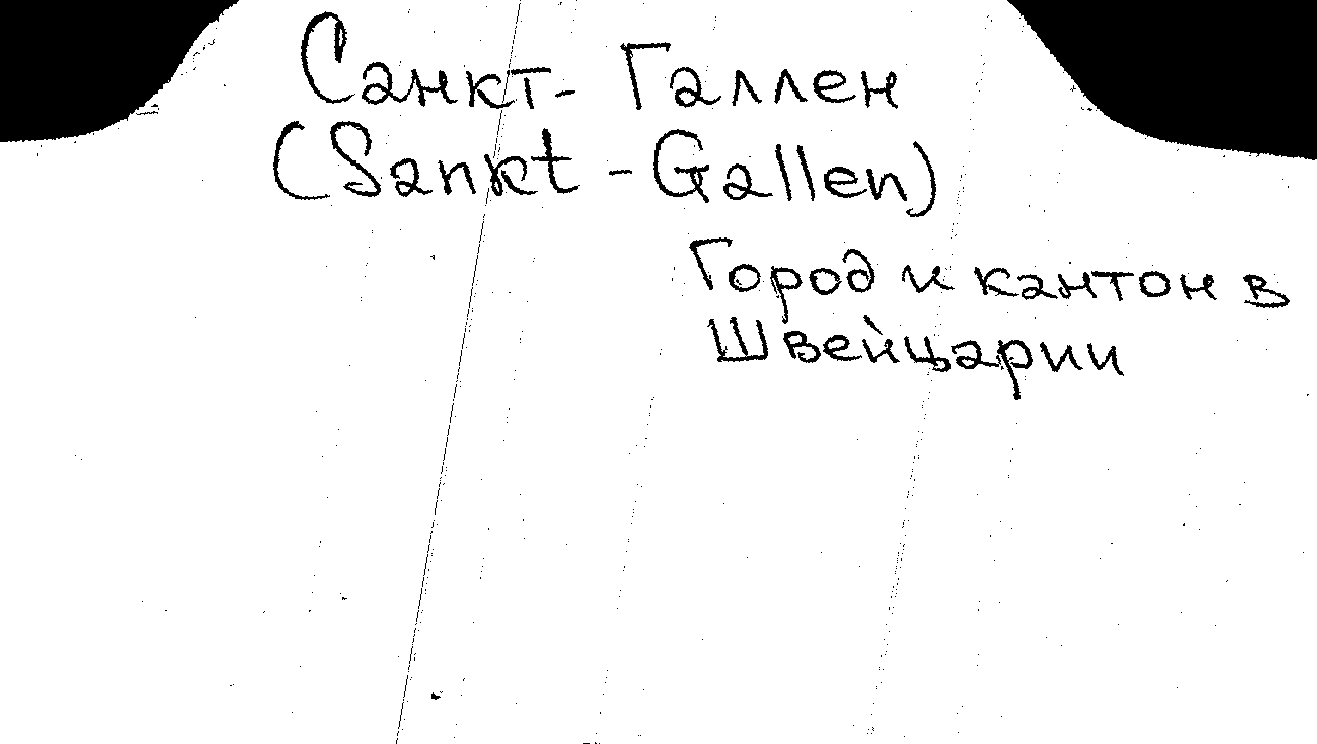 Санкт-Галлен
(Sankt-Gallen)
Город и кантон в
Швейцарии